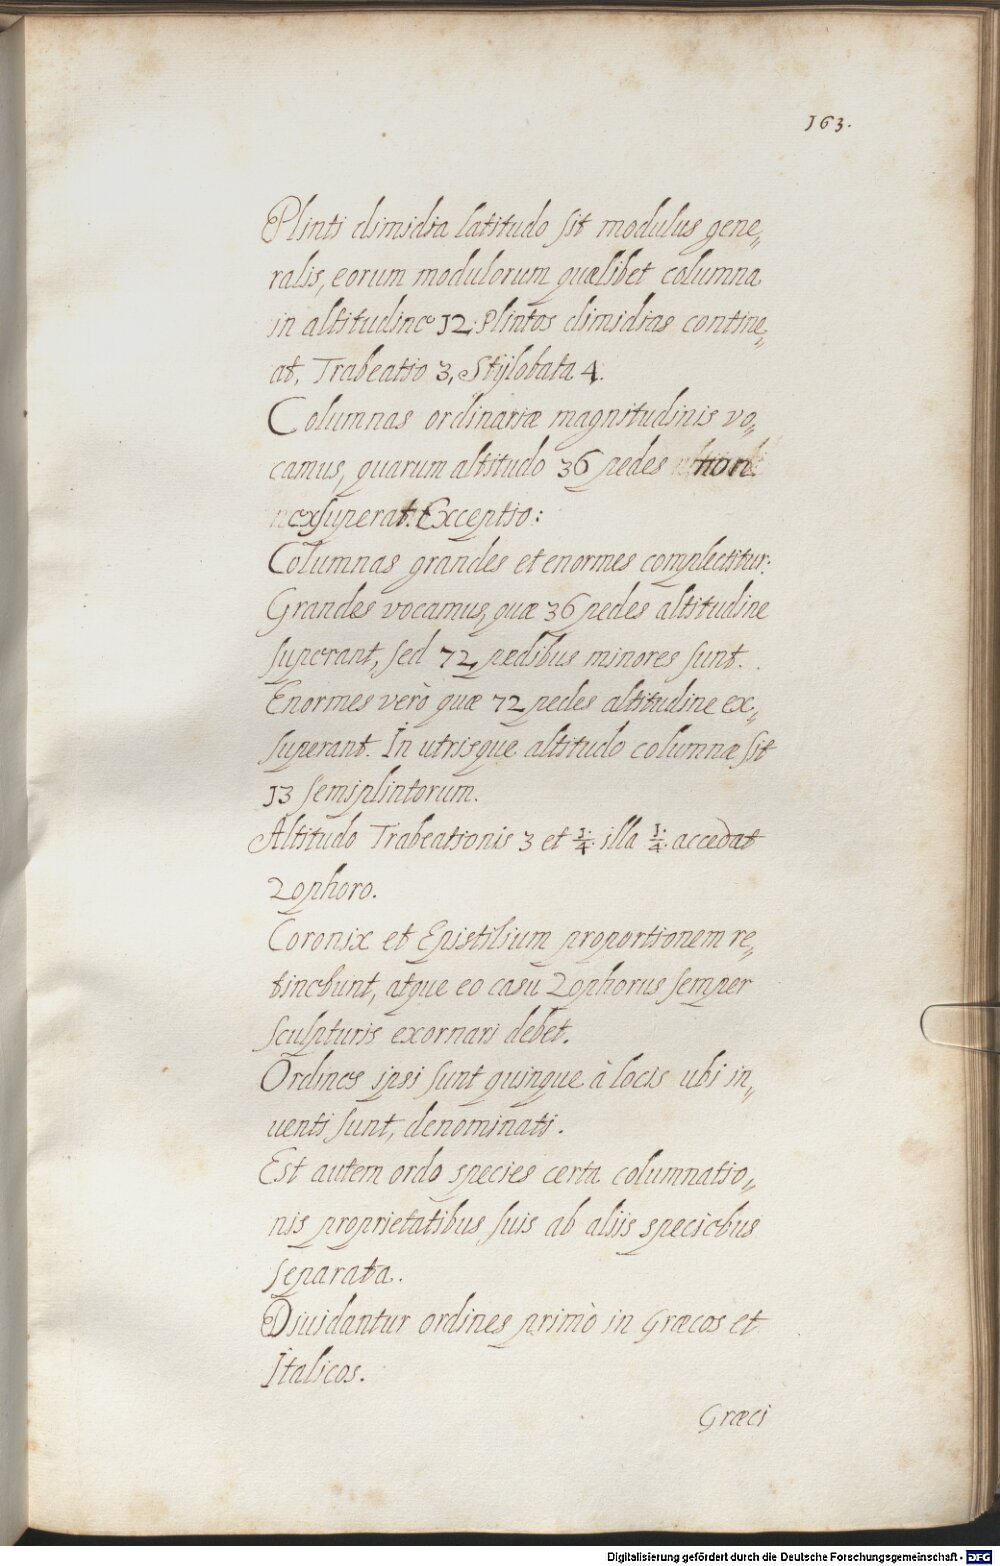 163.
Plinti dimidia latitudo sit modulus gene„
ralis, eorum modulorum quælibet columna
in altitudine 12 Plintos dimidias contine„
at, Trabeatio 3, Stijlobata 4.
Columnas ordinariæ magnitudinis vo„
camus, quarum altitudo 36 pedes non
exsuperat. Exceptio:
Columnas grandes et enormes complectitur:
Grandes vocamus, quæ 36 pedes altitudine
superant, sed 72, pedibus minores sunt.
Enormes verò quæ 72 pedes altitudine ex„
superant. In utrisque altitudo columnæ sit
13 semiplintorum.
Altitudo Trabeationis 3 et 1/4. illa 1/4. accedat
Zophoro.
Coronix et Epistilium proportionem re„
tinebunt, atque eo casu Zophorus semper
sculpturis exornari debet.
Ordines ipsi sunt quinque à locis ubi in„
uenti sunt, denominati.
Est autem ordo species certa columnatio„
nis proprietatibus suis ab aliis speciebus
separata.
Diuidantur ordines primò in Græcos et
Italicos.
Græci
Digitalisierung gefördert durch die Deutsche Forschungsgemeinschaft - DFG